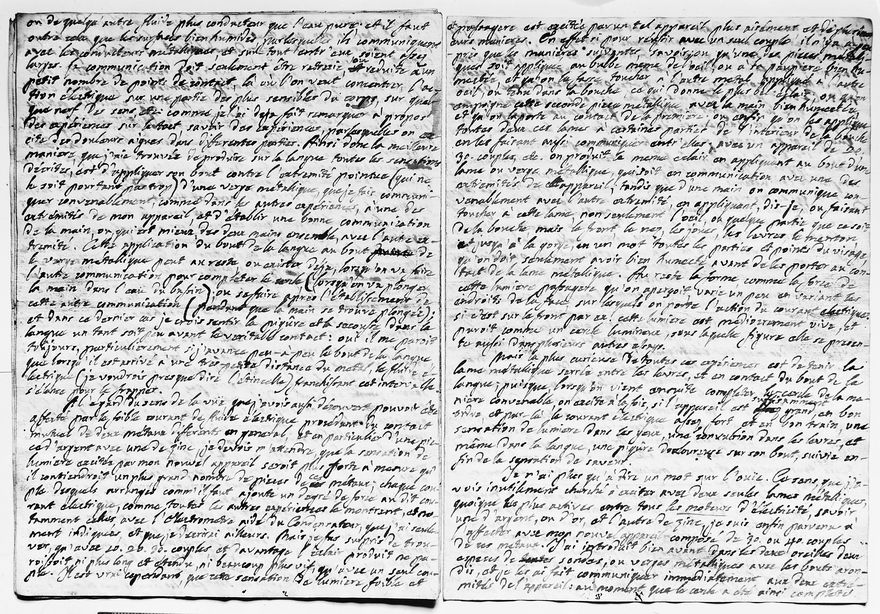 ou de quelqu'autre fluide plus conducteur que l'eau pure; et il faut
outre cela que les surfaces bien humides par lesquelles ils communiquent
avec les conducteurs métalliques et surtout l'entr'eux, soient assez
larges. La communication doit seulement être retrécie et reduite à un
petit nombre de points de contact, là où l'on veut concentrer l'ac-
tion électrique sur une partie des plus sensibles du corps, sur quel-
que nerf des sens, etc. comme j'ai déja fait remarquer à propos
des expériences sur le tact, savoir des expériences, par lesquelles on ex-
cite des douleurs aigues dans differentes parties. Ainsi donc la meilleure
maniere que j'aie trouvée de produire sur la langue toutes les sensations
décrites, est d'appliquer son bout contre l'extremité pointue (qui ne
le soit pourtant pas trop) d'une verge metallique, que je fais communi-
quer convenablement, comme dans les autres expériences, à une des
extremités de mon appareil, et d'établir une bonne communication
de la main, ou, qui est mieux, des deux mains ensemble, avec l'autre ex-
tremité. Cette application du bout de la langue au bout de
la verge métallique peut au reste ou exister déja, lorsqu'on va faire
l'autre communication pour completer le cercle (lorsqu'on va plonger
la main dans l'eau du bassin), ou se faire après l'établissement de
cette autre communication (pendant que la main se trouve plongée);
et dans ce dernier cas je crois sentir la piqûre et la secousse dans la
langue un tant soit peu avant le veritable contact: oui il me paroit
toujours, particulierement si j'avance peu-à-peu le bout de la langue
que lorsqu'il est arrivé à une très-petite distance du metal, le fluide é-
lectrique (je voudrois presque dire l'étincelle) franchissant cet intervalle
s'élance pour le frapper.
A l'egard du sens de la vue que j'avois aussi découvert pouvoir être
affecté par le foible courant de fluide électrique provenant du contact
mutuel de deux métaux differents en general, et en particulier d'une piè-
ce d'argent avec une de zinc, je devois m'attendre que la sensation de
lumiere excitée par mon nouvel appareil seroit plus forte à mesure qu'il
contiendroit un plus grand nombre de pièces de ces metaux; chaque cou-
ple desquels arrangés comme il faut ajoute un degré de force au dit cou-
rant électrique, comme toutes les autres expériences le montrent, et no-
tamment celles avec l'électrometre aidé du Condensateur, que j'ai seule-
ment indiquées, et que je décrirai ailleurs. Mais je fus surpris de trou-
ver, qu'avec 10. 20. 30. couples et d'avantage l'éclair produit ne pa-
roissoit ni plus long et étendu, ni beaucoup plus vif, qu'avec un seul cou-
ple. Il est vrai cependant que cette sensation de lumiere foible et
et passagere est excitée par un tel appareil plus aisément et de plusi-
eurs manieres. En effet si pour réussir avec un seul couple il n'y a à peu
près que les manieres suivantes, savoir, ou qu'une des pièces metal-
liques soit appliquée au bulbe même de l'oeil, ou à la paupiere bien hu-
mectée, et qu'on la fasse toucher à l'autre metal appliqué à l'autre
oeil, ou tenu dans la bouche, ce qui donne le plus bel éclair, ou qu'on
empoigne cette seconde pièce metallique avec la main bien humectée,
et qu'on la porte au contact de la première; ou enfin, qu'on les applique
toutes deux ces lames à certaines parties de l'interieur de la bouche
en les faisant aussi communiquer entr'elles; avec un appareil de 20.
30. couples, etc. on produit le même éclair, en appliquant au bout d'une
lame ou verge metallique, qui soit en communication avec une des
extremités de l'appareil, tandis que d'une main on communique con-
venablement avec l'autre extremité, en appliquant, dis-je, ou faisant
toucher à cette lame, non seulement l'oeil, ou quelque partie que ce soit
de la bouche, mais le front, le nez, les joues, les levres, le menton
et jusqu'à la gorge, en un mot toutes les parties et points du visage,
qu'on doit seulement avoir bien humectés avant de les porter au con-
tact de la lame metallique. Au reste la forme comme la force de
cette lumiere passagere qu'on aperçoit varie un peu en variant les
endroits de la face, sur lesquels on porte l'action du courant électrique;
si c'est sur le front par ex. cette lumiere est mediocrement vive, et
paroit comme un cercle lumineux, sous laquelle figure elle se presen-
te aussi dans plusieurs autres essays.
Mais la plus curieuse de toutes ces expériences est de tenir la
lame metallique serrée entre les levres, et en contact du bout de la
langue; puisque, lorsqu'on vient ensuite completer le cercle de la ma-
nière convenable on excite à la fois, si l'appareil est suffisamment
grand, en bon
ordre, et par là, le courant électrique assez fort, et en bon train, une
sensation de lumiere dans les yeux, une convulsion dans les levres, et
même dans la langue, une piqûre douloureuse sur son bout, suivie en-
fin de la sensation de saveur.
Je n'ai plus qu'à dire un mot sur l'ouïe. Ce sens, que j'a-
vois inutilement cherché à exciter avec deux seules lames metalliques,
quoique les plus actives entre tous les moteurs d'électricité, savoir
une d'argent, ou d'or, et l'autre de zinc, je suis enfin parvenu à
l'affecter avec mon nouvel appareil composé de 30. ou 40. couples
de ces metaux. J'ai introduit bien avant dans les deux oreilles deux
especes de sondes, ou verges metalliques avec les bouts arron-
dis, et je les ai fait communiquer immediatement aux deux extré-
mités de l'appareil: au moment que le cercle a été ainsi completé